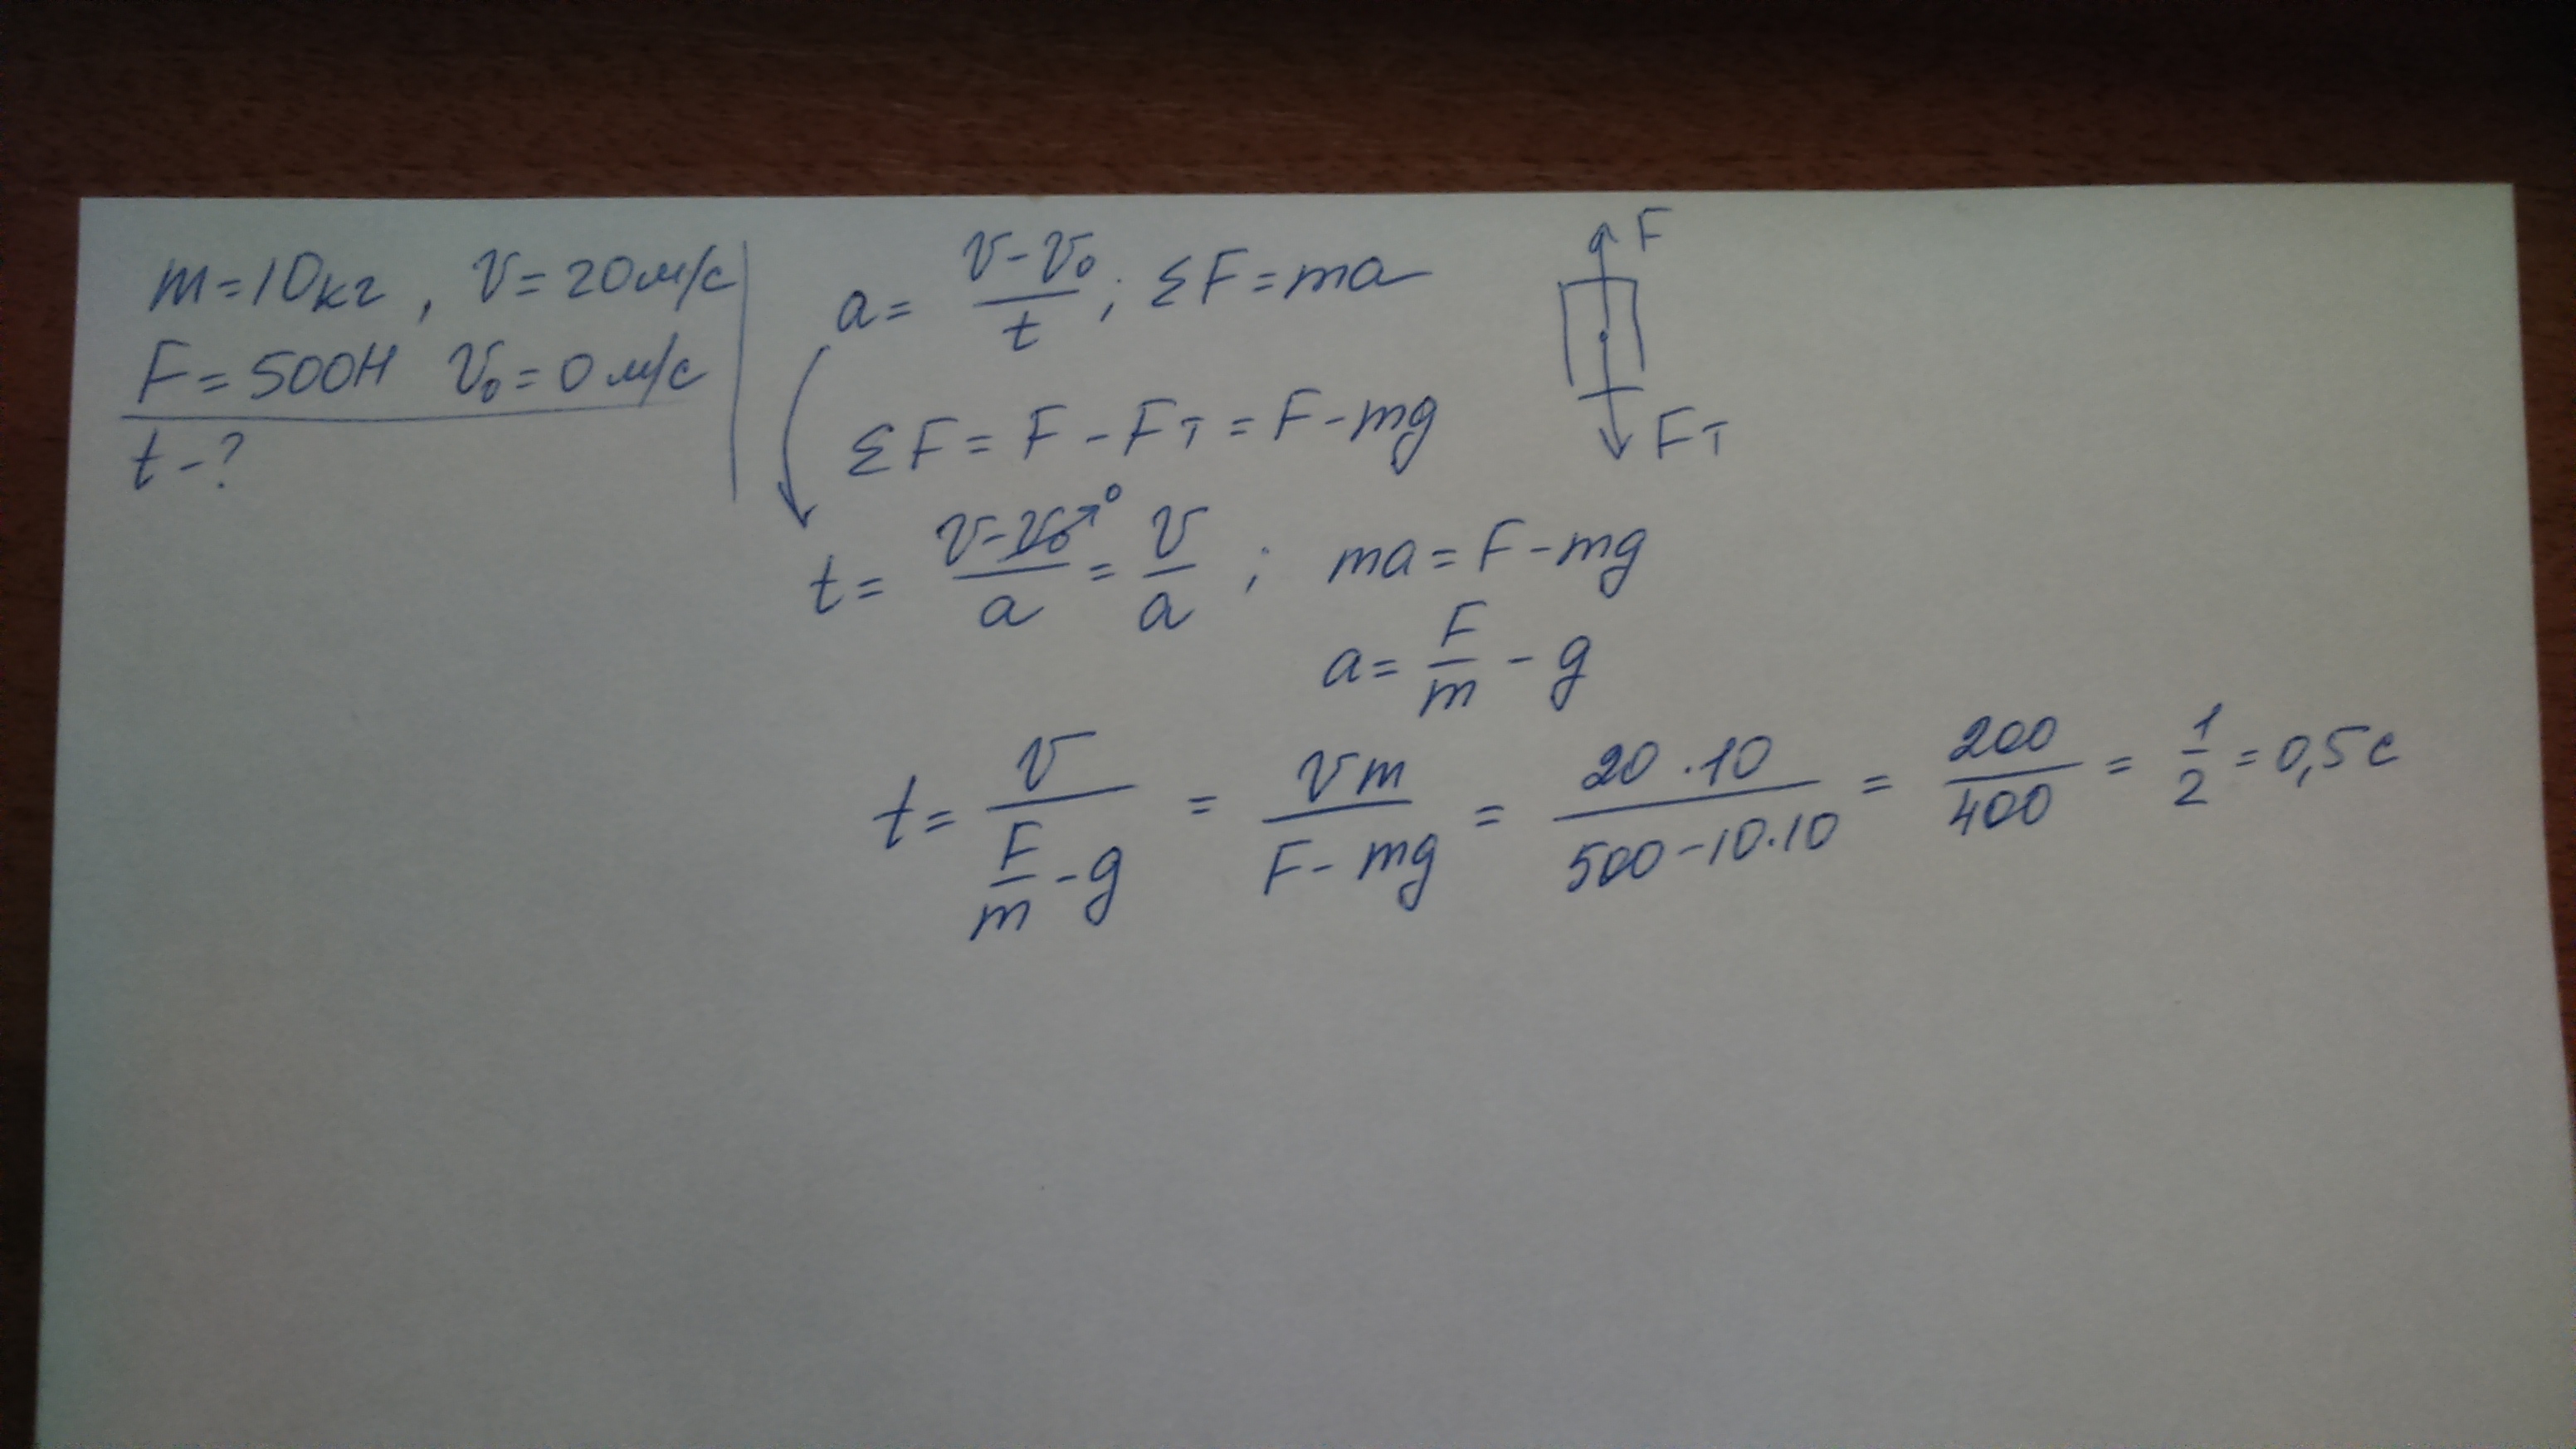 m=10кг, v=20м/с
F=500Н v₀=0м/с
t-?
a= (v-v₀)/t; ΣF=ma
ΣF=F-Fт=F-mg
t= (v-v₀→0)/a = v/a; ma=F-mg
a= F/m - g
t= v/(F/m - g) = vm/(F-mg) = 20·10/(500-10·10) = 200/400 = 1/2 = 0,5с
F
Fт